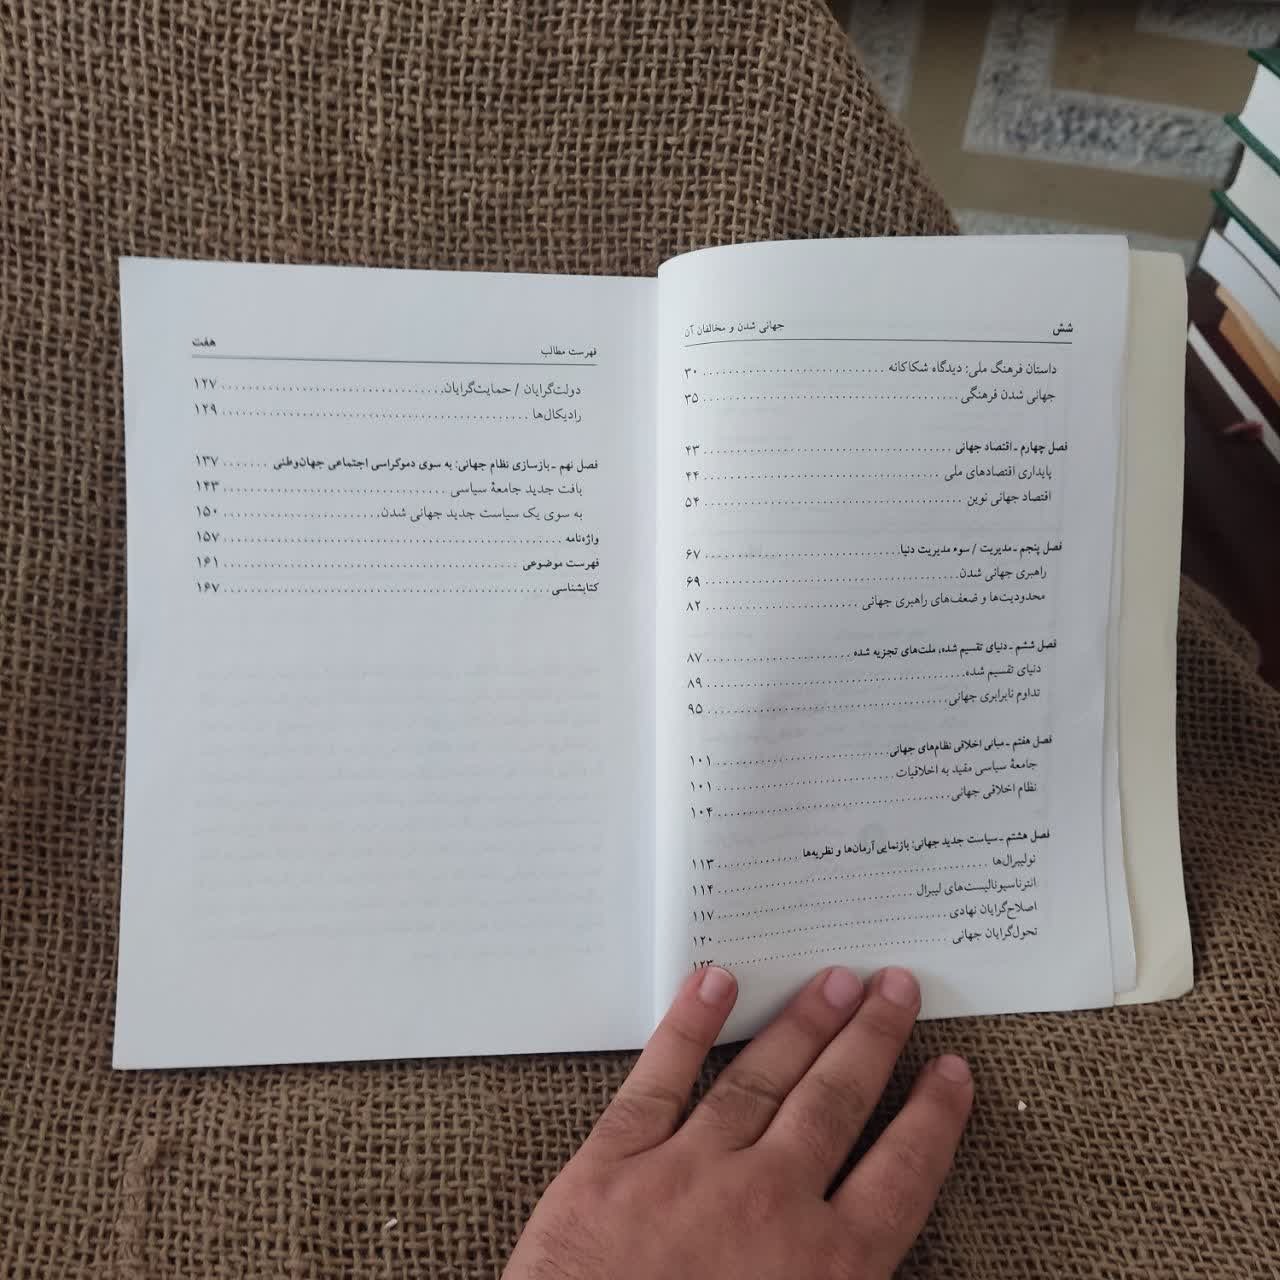 شش جهانی شدن و مخالفان آن
داستان فرهنگ ملی: دیدگاه شکاکانه ........ ۳۰
جهانی شدن فرهنگی ........ ۳۵
فصل چهارم ـ اقتصاد جهانی ........ ۴۳
پایداری اقتصادهای ملی ........ ۴۴
اقتصاد جهانی نوین ........ ۵۴
فصل پنجم ـ مدیریت / سوء مدیریت دنیا ........ ۶۷
راهبری جهانی شدن ........ ۶۹
محدودیت‌ها و ضعف‌های راهبری جهانی ........ ۸۲
فصل ششم ـ دنیای تقسیم شده، ملت‌های تجزیه شده ........ ۸۷
دنیای تقسیم شده ........ ۸۹
تداوم نابرابری جهانی ........ ۹۵
فصل هفتم ـ مبانی اخلاقی نظام‌های جهانی ........ ۱۰۱
جامعهٔ سیاسی مقید به اخلاقیات ........ ۱۰۱
نظام اخلاقی جهانی ........ ۱۰۴
فصل هشتم ـ سیاست جدید جهانی: بازنمایی آرمان‌ها و نظریه‌ها ........ ۱۱۳
نولیبرال‌ها ........ ۱۱۴
انترناسیونالیست‌های لیبرال ........ ۱۱۷
اصلاح‌گرایان نهادی ........ ۱۲۰
تحول‌گرایان جهانی ........ ۱۲۳
فهرست مطالب هفت
دولت‌گرایان / حمایت‌گرایان ........ ۱۲۷
رادیکال‌ها ........ ۱۲۹
فصل نهم ـ بازسازی نظام جهانی: به سوی دموکراسی اجتماعی جهان‌وطنی ........ ۱۳۷
بافت جدید جامعهٔ سیاسی ........ ۱۴۳
به سوی یک سیاست جدید جهانی شدن ........ ۱۵۰
واژه‌نامه ........ ۱۵۷
فهرست موضوعی ........ ۱۶۱
کتابشناسی ........ ۱۶۷